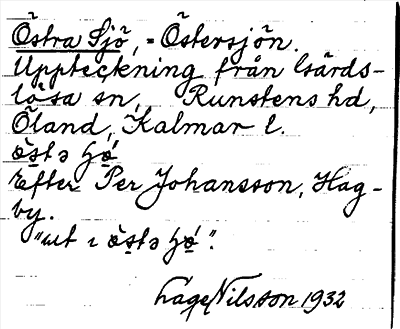 Östra Sjö, = Östersjön.
Uppteckning från Gärds-
lösa sn, Runstens hd,
Öland, Kalmar l.
ö̱s̱tə ꞕö́
Efter Per Johansson, Hag-
by.
"ut ı ö̱s̱tə ꞕö́".
Lage Nilsson 1932